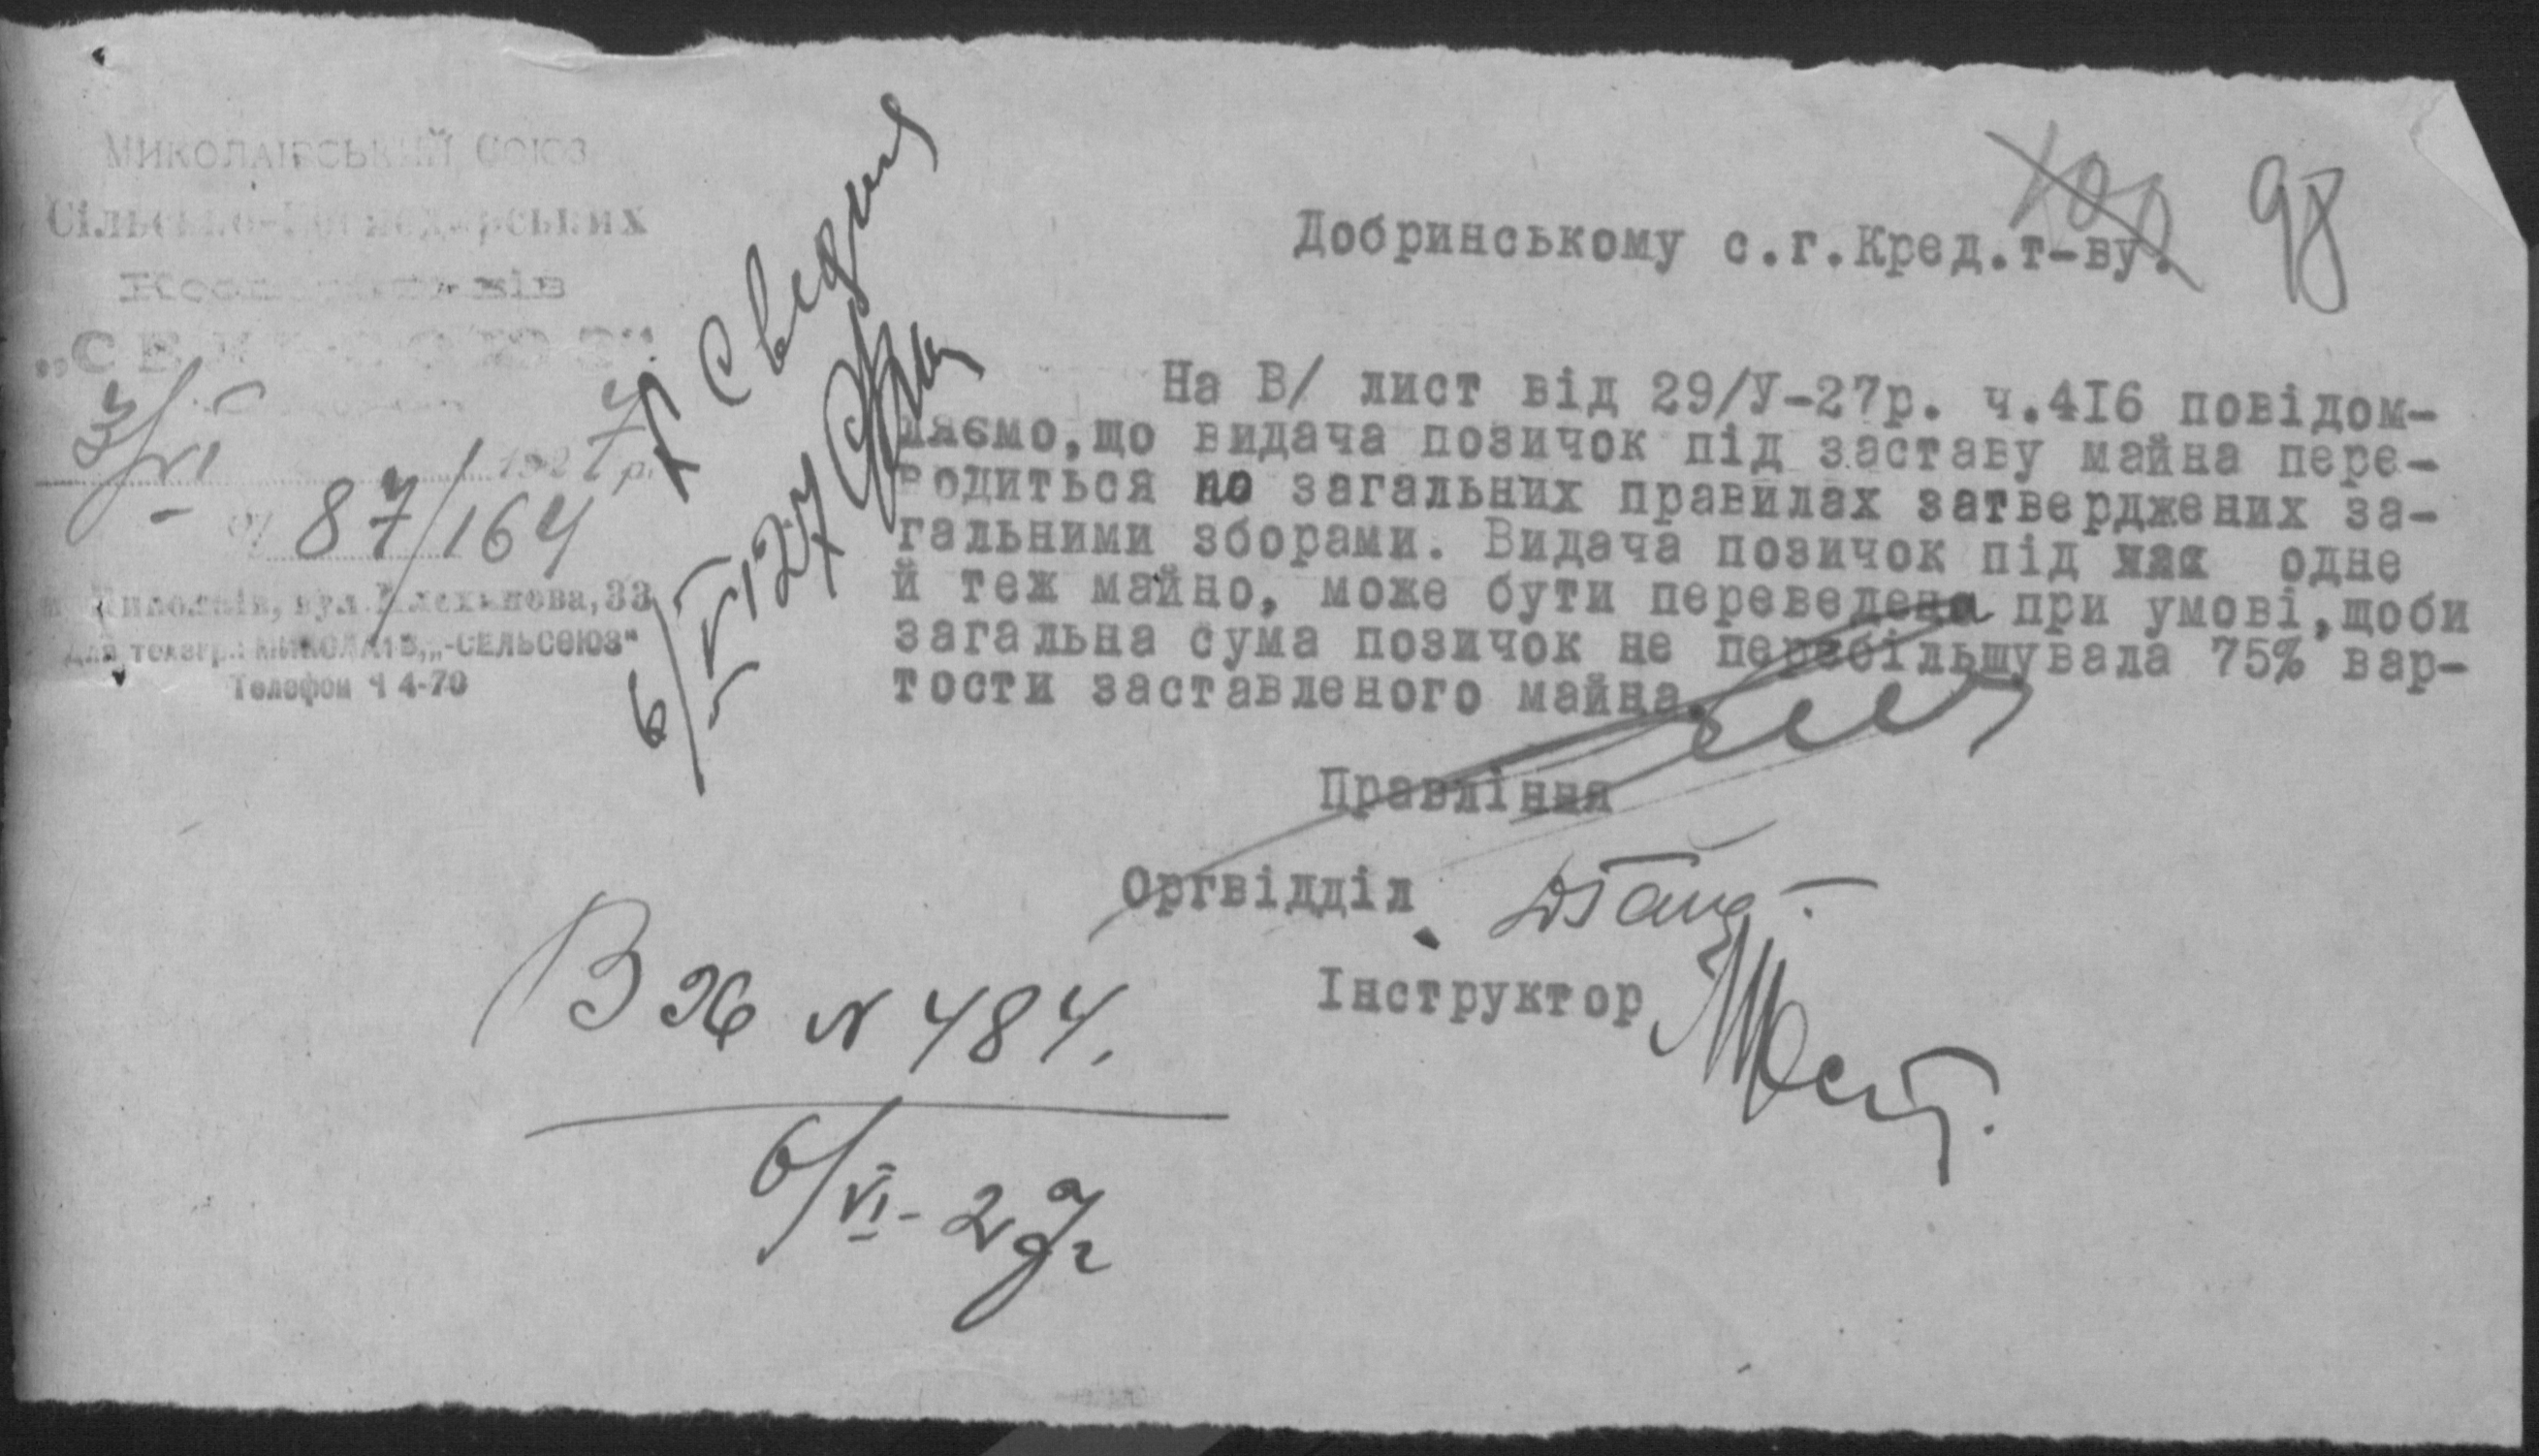 МИКОЛАЇВСЬКИЙ СОЮЗ
Сільсько-Господарських
Кооперативів
„СЕЛЬСОЮЗ“
3/VI 1927 р.
87/164
м. Миколаїв, вул. Плеханова, 33
Для телегр.: МИКОЛАЇВ, „-СЕЛЬСОЮЗ“
Телефон Ч 4-70
К Сведения
6/VI 27
100 98
Добринському с.г.Кред.т-ву.
На В/ лист від 29/У-27р. ч.4I6 повідом-
ляємо,що видача позичок під заставу майна пере-
водиться по загальних правилах затверджених за-
гальними зборами. Видача позичок під одне
й теж майно, може бути переведена при умові,щоби
загальна сума позичок не перебільшувала 75% вар-
тости заставленого майна.
Правління
Оргвідділ
Інструктор
В Ж № 484.
6/VI - 27 г